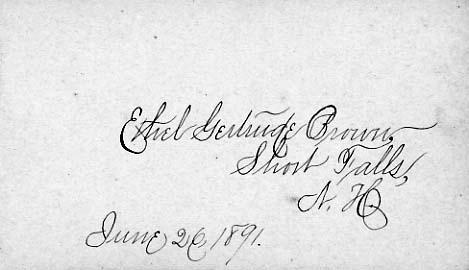 Ethel Gertrude Brown,
Short Falls,
N. H.
June 26 1891.